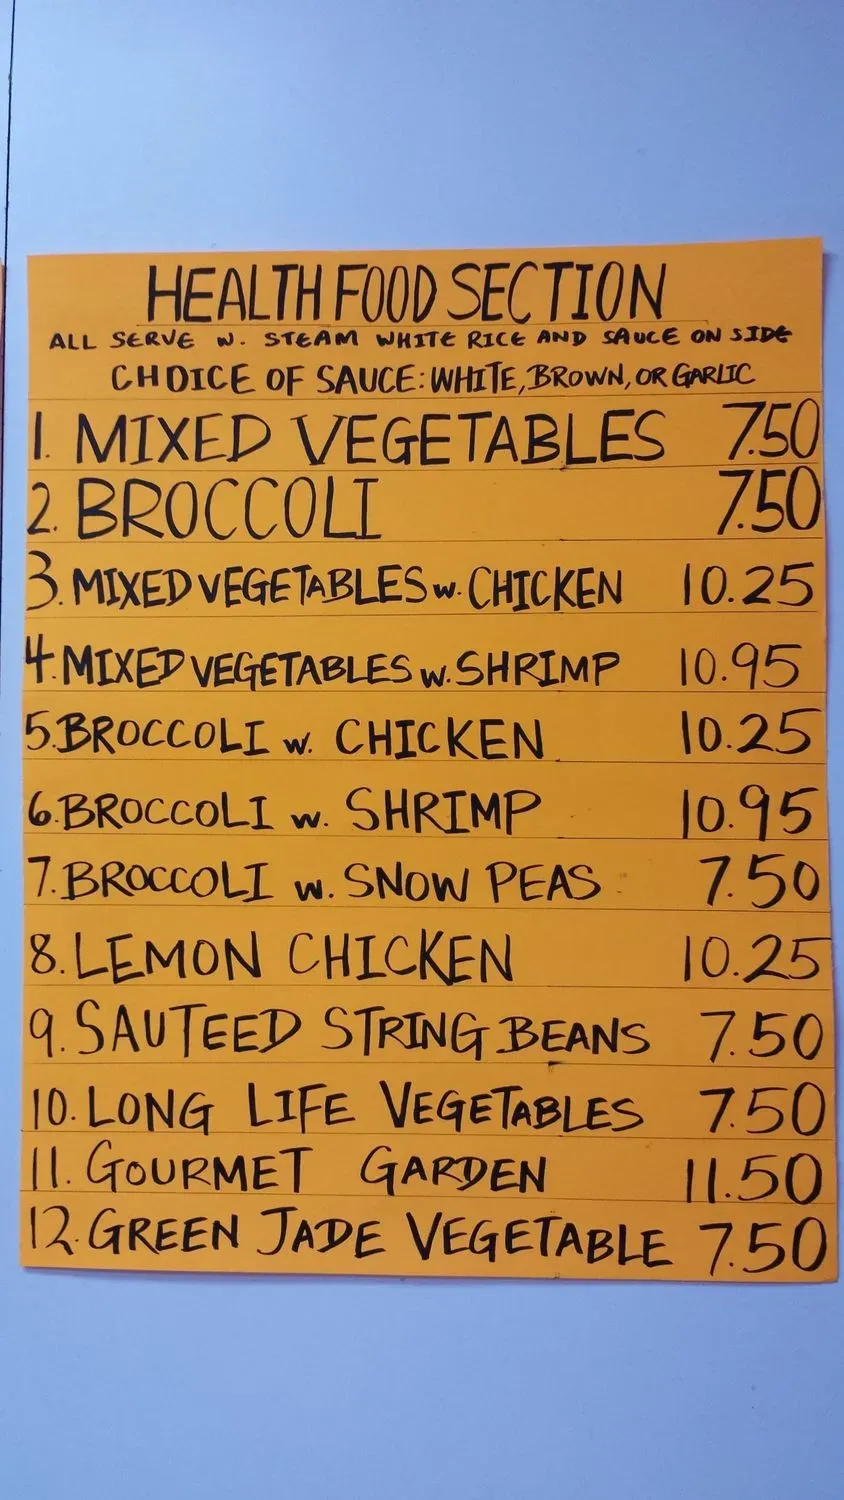 HEALTH FOOD SECTION
ALL SERVE W. STEAM WHITE RICE AND SAUCE ON SIDE
CHOICE OF SAUCE: WHITE, BROWN, OR GARLIC
1. MIXED VEGETABLES 7.50
2. BROCCOLI 7.50
3. MIXED VEGETABLES w. CHICKEN 10.25
4. MIXED VEGETABLES w. SHRIMP 10.95
5. BROCCOLI w. CHICKEN 10.25
6. BROCCOLI w. SHRIMP 10.95
7. BROCCOLI w. SNOW PEAS 7.50
8. LEMON CHICKEN 10.25
9. SAUTEED STRING BEANS 7.50
10. LONG LIFE VEGETABLES 7.50
11. GOURMET GARDEN 11.50
12. GREEN JADE VEGETABLE 7.50